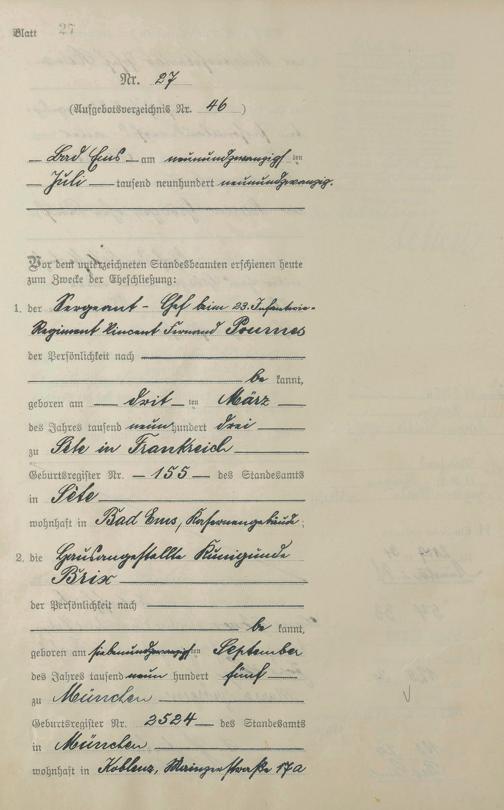 Blatt 27
Nr. 27
(Aufgebotsverzeichnis Nr. 46)
Bad Ems am neunundzwanzigsten
Juli tausend neunhundert neunundzwanzig.
Vor dem unterzeichneten Standesbeamten erschienen heute
zum Zwecke der Eheschließung:
1. der Sergeant - Chef beim 23. Infanterie-
Regiment Vincent Fernand Poumes
der Persönlichkeit nach
be kannt,
geboren am dritten März
des Jahres tausend neun hundert drei
zu Séte in Frankreich
Geburtsregister Nr. 155 des Standesamts
in Séte
wohnhaft in Bad Ems, Kasernengebäude;
2. die Hausangestellte Kunigunde
Brix
der Persönlichkeit nach
be kannt,
geboren am siebenundzwanzigsten September
des Jahres tausend neun hundert fünf
zu München
Geburtsregister Nr. 2524 des Standesamts
in München
wohnhaft in Koblenz, Mainzerstraße 17a